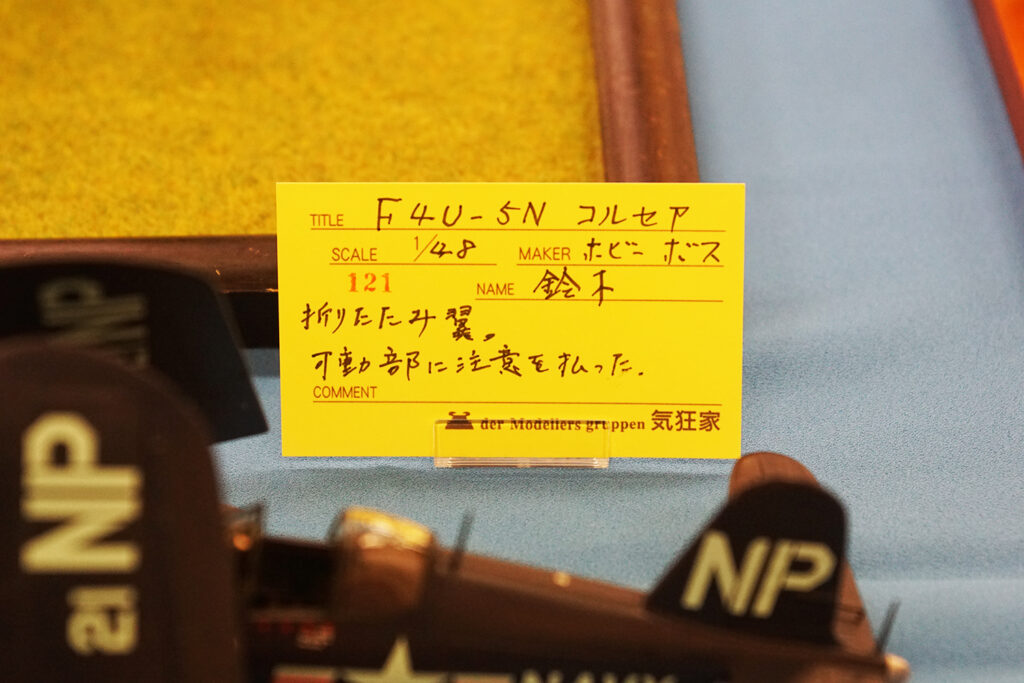 TITLE F4U-5N コルセア
SCALE 1/48 MAKER ホビーボス
121 NAME 鈴木
折りたたみ翼。
可動部に注意を払った.
COMMENT
der Modellers gruppen 気狂家
NP
21 NP
NP
NAVY